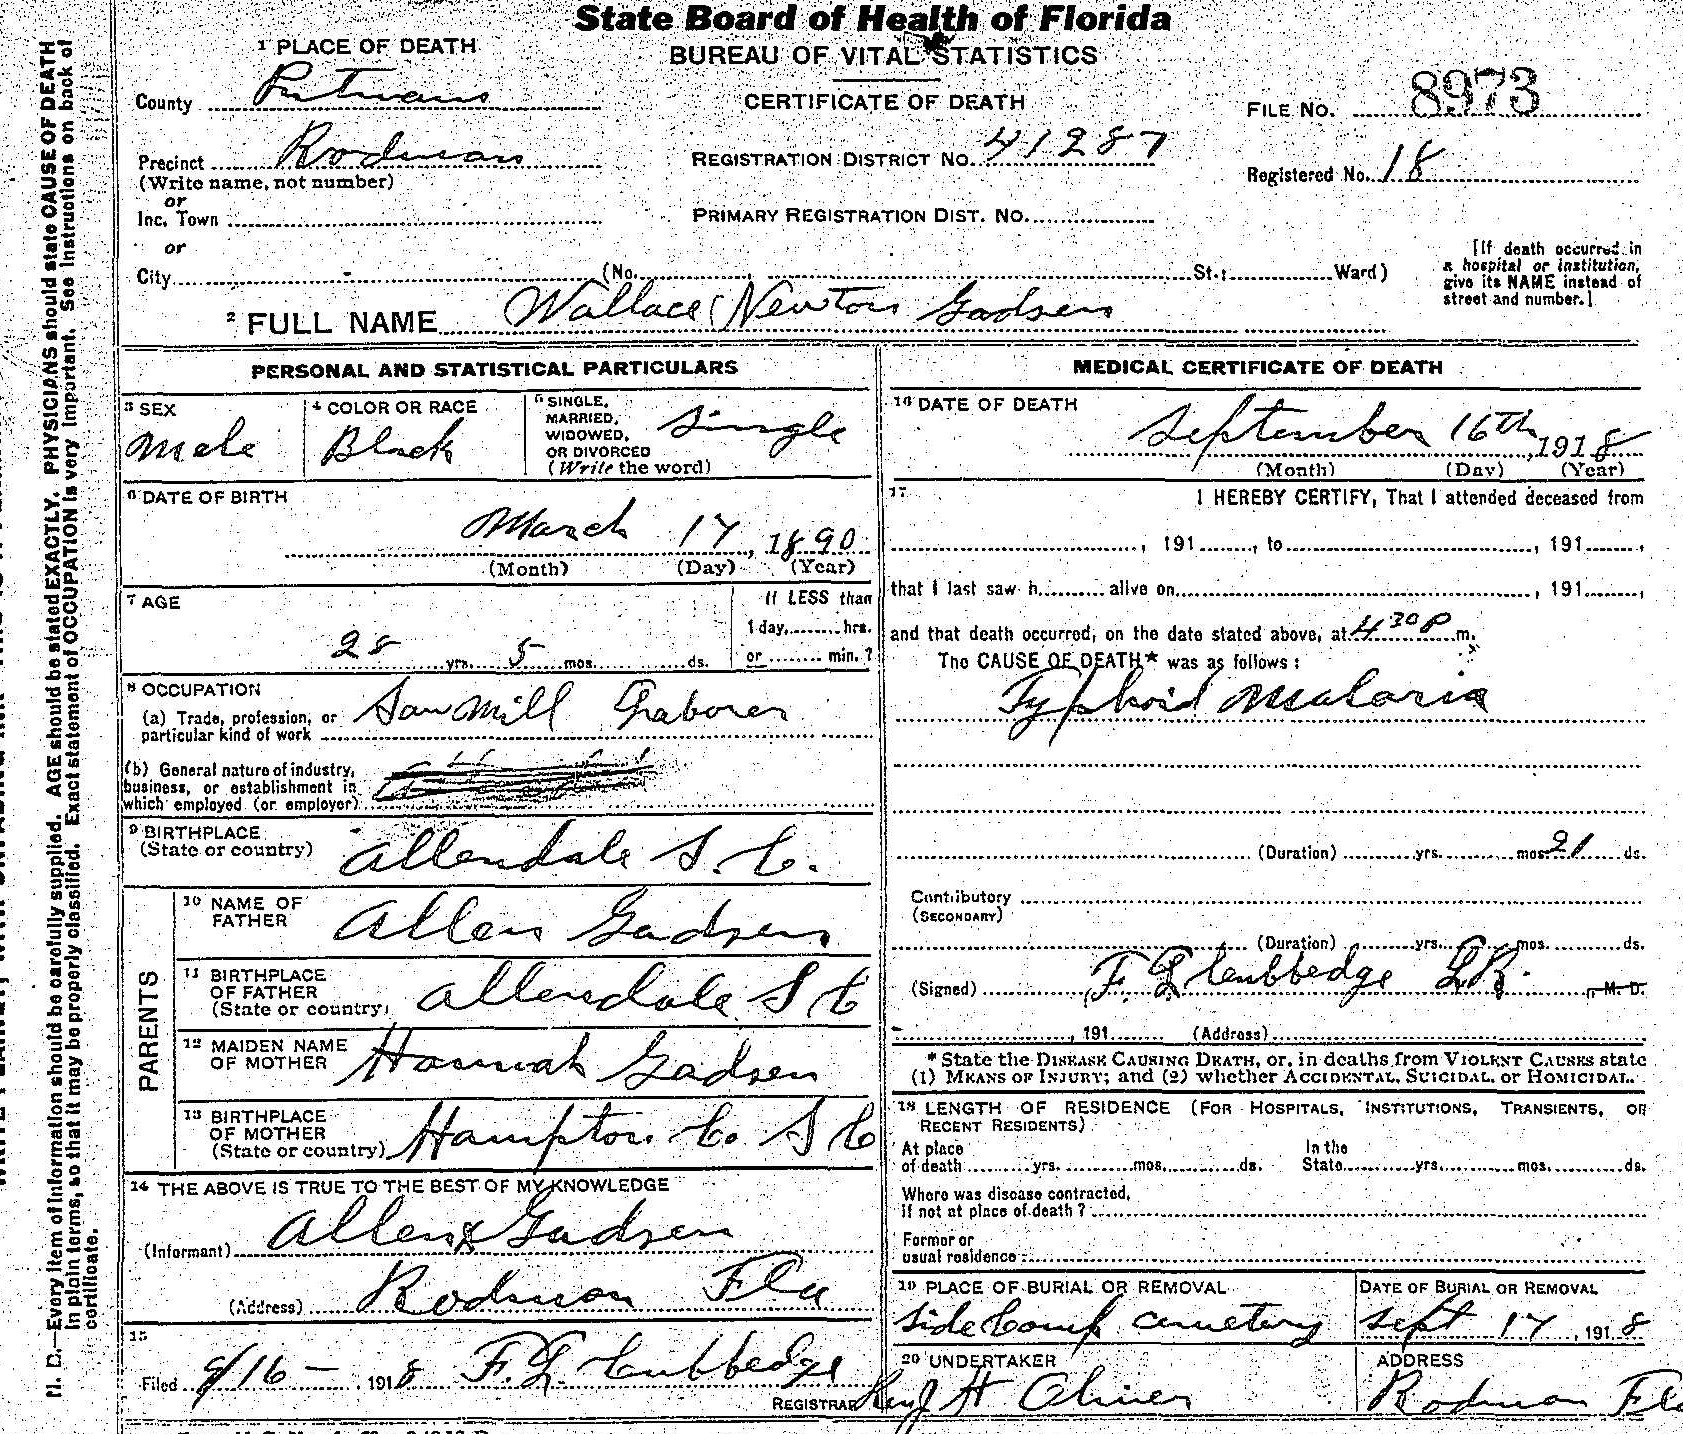 State Board of Health of Florida
BUREAU OF VITAL STATISTICS
CERTIFICATE OF DEATH
1 PLACE OF DEATH
County Putnam
Precinct Rodman
(Write name, not number)
or
Inc. Town
or
City (No. St.; Ward)
REGISTRATION DISTRICT No. 41287
PRIMARY REGISTRATION DIST. NO.
FILE NO. 8973
Registered No. 18
[If death occurred in
a hospital or institution,
give its NAME instead of
street and number.]
2 FULL NAME Wallace Newton Gadsen
PERSONAL AND STATISTICAL PARTICULARS
3 SEX
Male
4 COLOR OR RACE
Black
5 SINGLE,
MARRIED,
WIDOWED,
OR DIVORCED
(Write the word)
Single
6 DATE OF BIRTH
March 17, 1890
(Month) (Day) (Year)
7 AGE
28 yrs. 5 mos. ds.
If LESS than
1 day, hrs.
or min.?
8 OCCUPATION
(a) Trade, profession, or
particular kind of work Saw Mill Laborer
(b) General nature of industry,
business, or establishment in
which employed (or employer)
9 BIRTHPLACE
(State or country) Allendale S. C.
PARENTS
10 NAME OF
FATHER Allen Gadsen
11 BIRTHPLACE
OF FATHER
(State or country) Allendale S C
12 MAIDEN NAME
OF MOTHER Hannah Gadsen
13 BIRTHPLACE
OF MOTHER
(State or country) Hampton Co. S C
14 THE ABOVE IS TRUE TO THE BEST OF MY KNOWLEDGE
(Informant) Allen x Gadsen
(Address) Rodman Fla
15
Filed 9/16 - 1918 F. G. Cubbedge
REGISTRAR
MEDICAL CERTIFICATE OF DEATH
16 DATE OF DEATH
September 16th, 1918
(Month) (Day) (Year)
17 I HEREBY CERTIFY, That I attended deceased from
, 191 , to , 191 ,
that I last saw h alive on , 191 ,
and that death occurred, on the date stated above, at 4 30 P m.
The CAUSE OF DEATH* was as follows:
Typhoid Malaria
(Duration) yrs. mos. 21 ds.
Contributory
(SECONDARY)
(Duration) yrs. mos. ds.
(Signed) F. G. Cubbedge L.R. , M. D.
, 191 (Address)
* State the DISEASE CAUSING DEATH, or, in deaths from VIOLENT CAUSES state
(1) MEANS OF INJURY; and (2) whether ACCIDENTAL, SUICIDAL, or HOMICIDAL.
18 LENGTH OF RESIDENCE (FOR HOSPITALS, INSTITUTIONS, TRANSIENTS, OR
RECENT RESIDENTS)
At place
of death yrs. mos. ds.
In the
State yrs. mos. ds.
Where was disease contracted,
if not at place of death?
Former or
usual residence
19 PLACE OF BURIAL OR REMOVAL
Side Camp Cemetery
DATE OF BURIAL OR REMOVAL
Sept 17, 1918
20 UNDERTAKER
H Oliver
ADDRESS
Rodman Fla
N. B.—Every item of information should be carefully supplied. AGE should be stated EXACTLY. PHYSICIANS should state CAUSE OF DEATH
in plain terms, so that it may be properly classified. Exact statement of OCCUPATION is very important. See Instructions on back of
certificate.